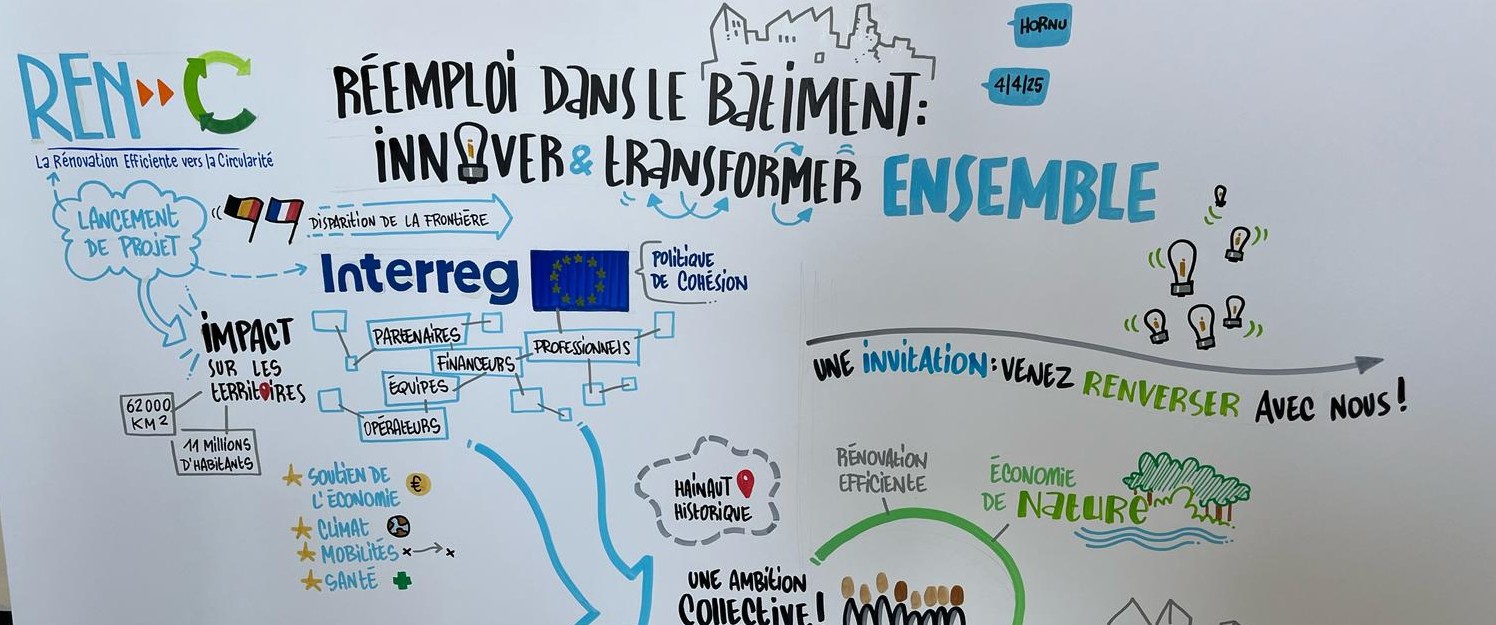 HORNU
4/4/25
REN C
La Rénovation Efficiente vers la Circularité
RÉEMPLOI DANS LE BÂTIMENT:
INNOVER & TRANSFORMER ENSEMBLE
LANCEMENT
DE PROJET
DISPARITION DE LA FRONTIÈRE
Interreg
POLITIQUE
DE COHÉSION
IMPACT
SUR LES
TERRITOIRES
62000
KM2
11 MILLIONS
D'HABITANTS
PARTENAIRES
FINANCEURS
PROFESSIONNELS
ÉQUIPES
OPÉRATEURS
SOUTIEN DE
L'ÉCONOMIE
€
CLIMAT
MOBILITÉS
SANTÉ
UNE INVITATION: VENEZ RENVERSER AVEC NOUS!
HAINAUT
HISTORIQUE
RÉNOVATION
EFFICIENTE
ÉCONOMIE
DE NATURE
UNE AMBITION
COLLECTIVE!